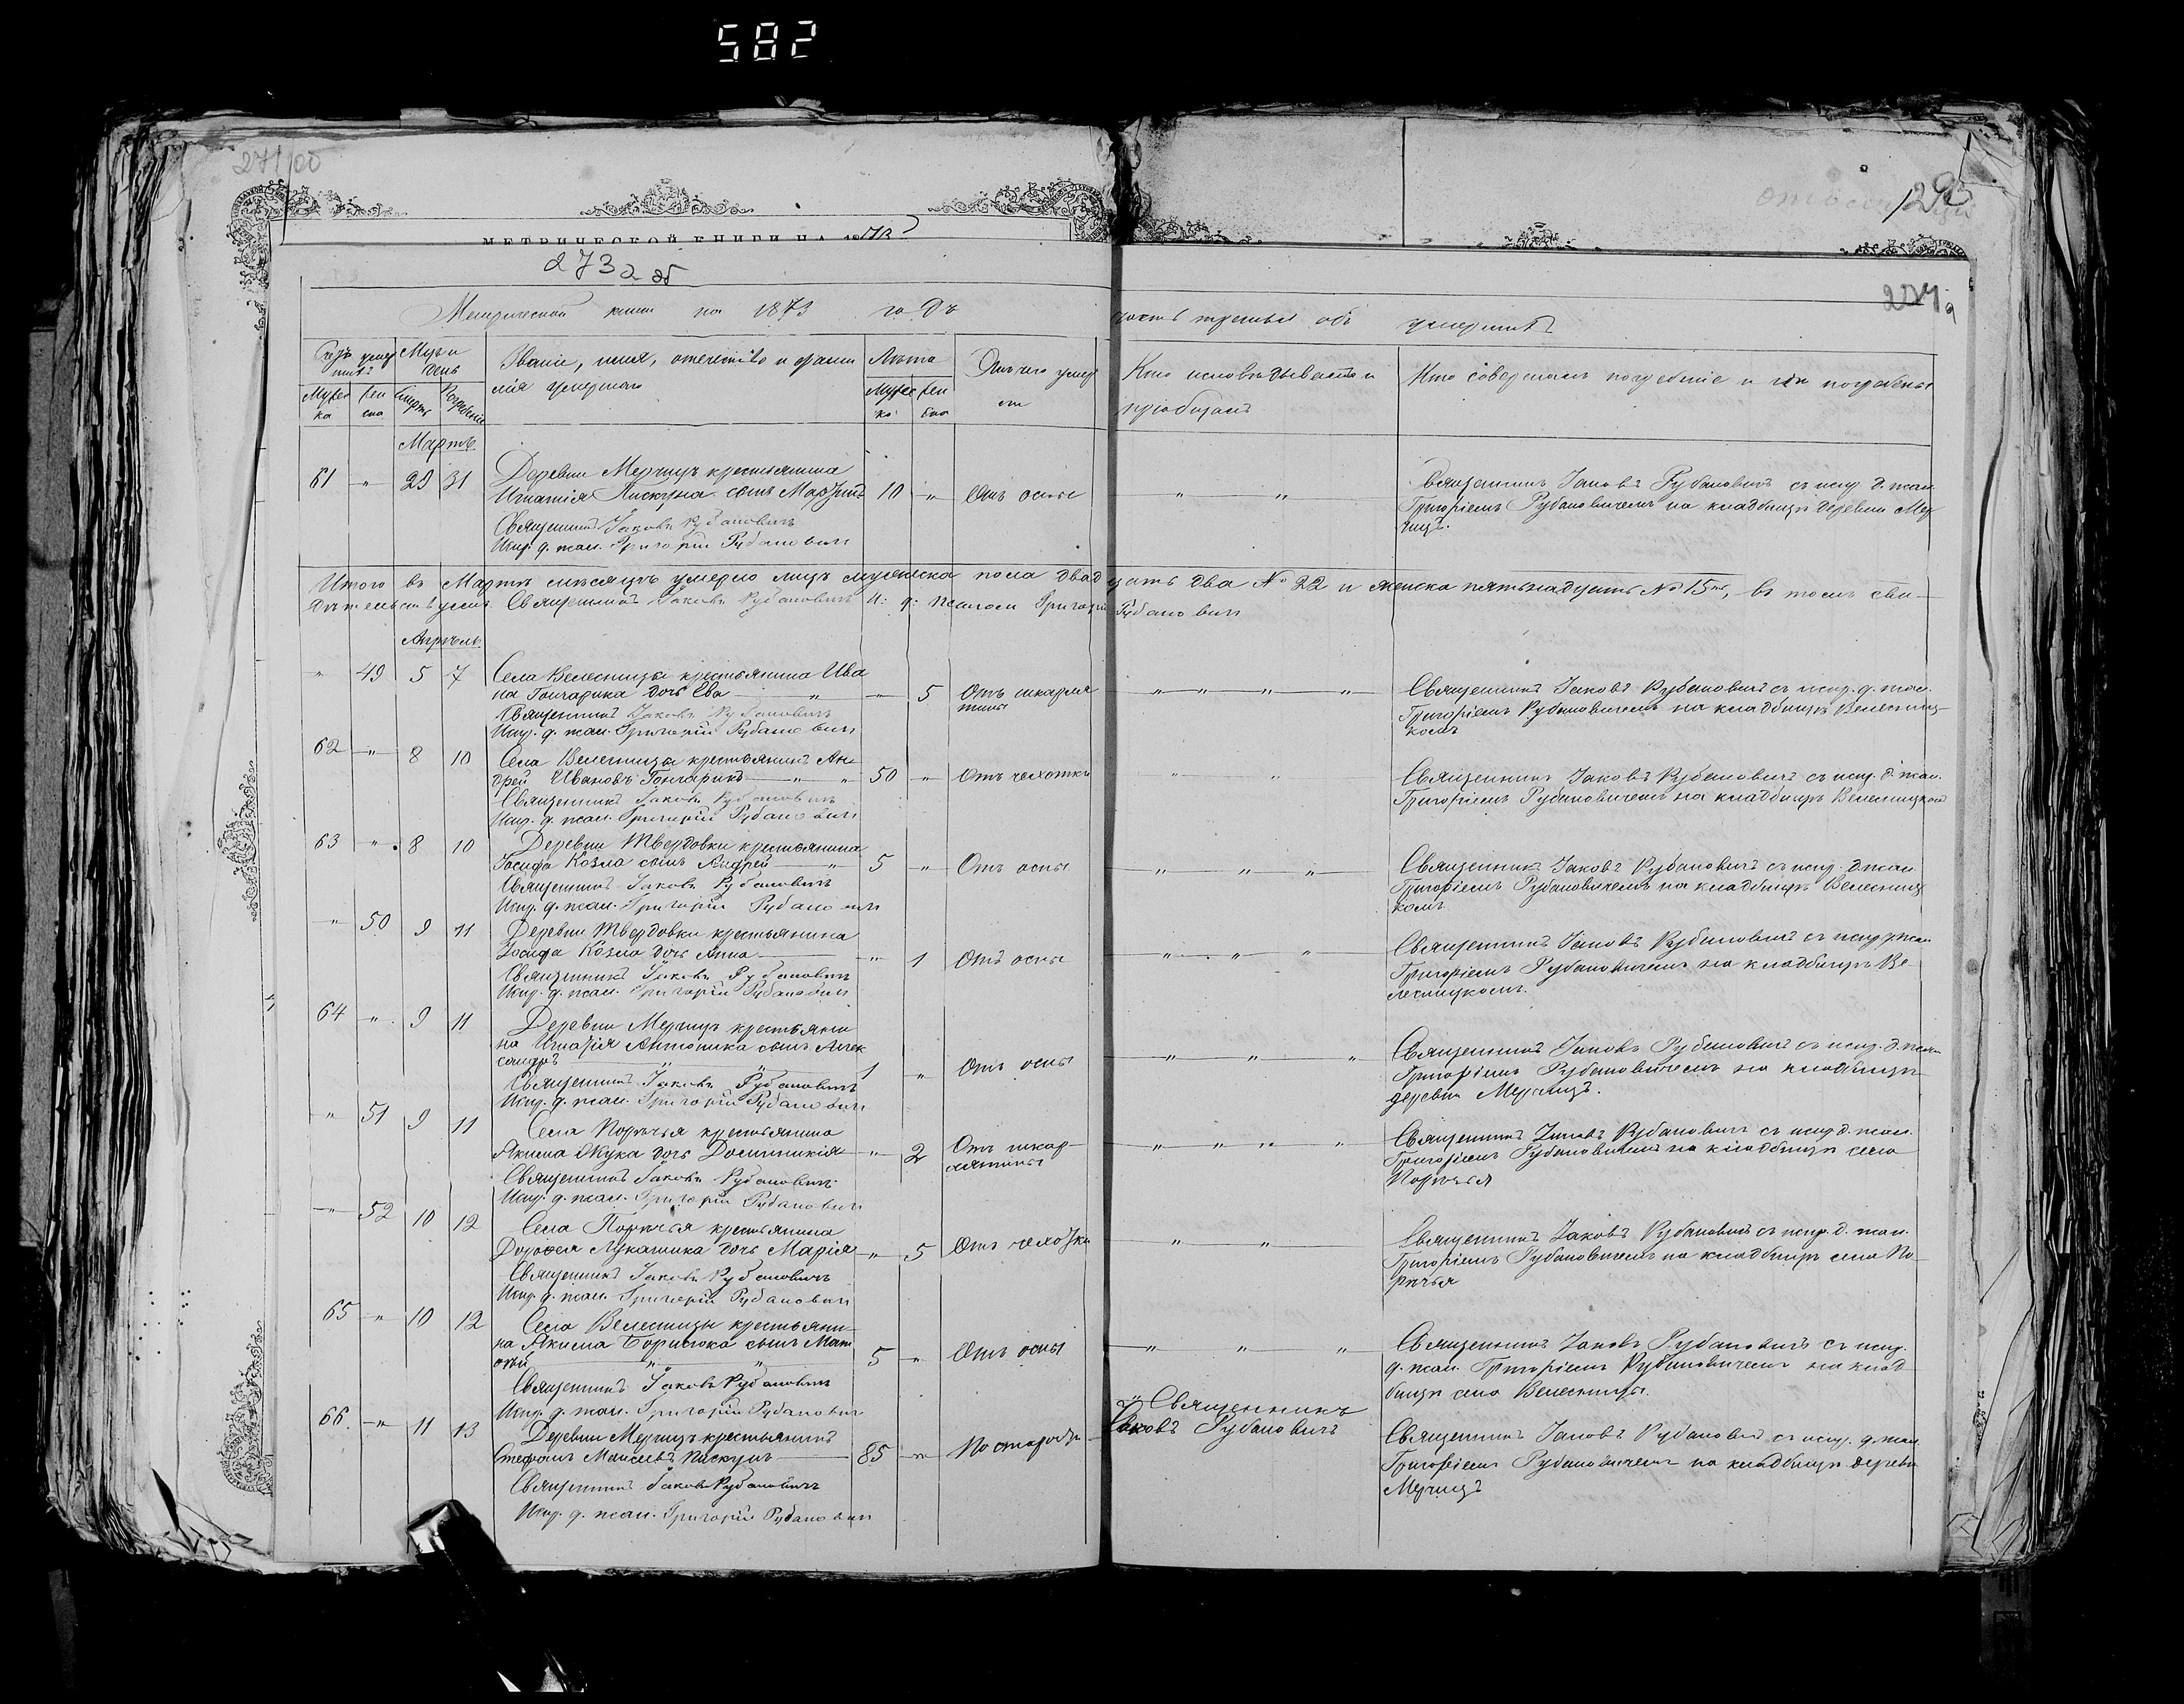 582
271 об
МЕТРИЧЕСКОЙ КНИГИ НА 1873
273 а об
274 а
Метрической книги на 1873 годъ часть третья объ умершихъ
Мѣсяцъ и день
Званіе, имя, отчество и фамилія умершаго
Лѣта
Отъ чего умеръ
Кто исповѣдывалъ и пріобщалъ
Кто совершалъ погребеніе и гдѣ погребены
Мартъ
61 " 29 31 Деревни Мерчицъ крестьянина
Игнатія Пискуна сынъ 10 " Отъ оспы " "
Священникъ Іаковъ Рубановичъ съ испр. д. псал.
Григоріемъ Рубановичемъ на кладбищѣ деревни Мер
чицъ.
Священникъ Іаковъ Рубановичъ
Испр. д. псал. Григорій Рубановичъ
Итого въ Мартѣ мѣсяцѣ умерло лицъ мужеска пола двадцать два № 22 и женска пятьнадцать № 15ть, въ томъ сви-
дѣтельствуемъ. Священникъ Іаковъ Рубановичъ И. д. псалом. Григорій Рубановичъ
Апрѣль.
" 49 5 7 Села Велесницы крестьянина Ива
на Гончарика дочь Ева " — 5 Отъ шкарла
тины " " " "
Священникъ Іаковъ Рубановичъ съ испр. д. псал.
Григоріемъ Рубановичемъ на кладбищѣ Велесниц-
комъ
Священникъ Іаковъ Рубановичъ
Испр. д. псал. Григорій Рубановичъ
62 " 8 10 Села Велесницы крестьянинъ Ан-
дрей Ивановъ Гончарикъ " " 50 " Отъ чахотки " "
Священникъ Іаковъ Рубановичъ съ испр. д. псал.
Григоріемъ Рубановичемъ на кладбищѣ Велесницкомъ
Священникъ Іаковъ Рубановичъ
Испр. д. псал. Григорій Рубановичъ
63 " 8 10 Деревни Твердовки крестьянина
Іосифа Козла сынъ Андрей " 5 " Отъ оспы " " "
Священникъ Іаковъ Рубановичъ съ испр. д. псал.
Григоріемъ Рубановичемъ на кладбищѣ Велесниц
комъ
Священникъ Іаковъ Рубановичъ
Испр. д. псал. Григорій Рубановичъ
" 50 9 11 Деревни Твердовки крестьянина
Іосифа Козла дочь Анна " 1 Отъ оспы " " "
Священникъ Іаковъ Рубановичъ съ испр. д. псал
Григоріемъ Рубановичемъ на кладбищѣ Ве-
лесницкомъ.
Священникъ Іаковъ Рубановичъ
Испр. д. псал. Григорій Рубановичъ
64 " 9 11 Деревни Мерчицъ крестьяни
на Игнатія Антоника сынъ Алек
сандръ " " 1 " Отъ оспы " " "
Священникъ Іаковъ Рубановичъ съ испр. д. псал
Григоріемъ Рубановичемъ на кладбищѣ
деревни Мерчицъ.
Священникъ Іаковъ Рубановичъ
Испр. д. псал. Григорій Рубановичъ
" 51 9 11 Села Порѣчья крестьянина
Якима Жука дочь Домникія " 2 Отъ шкар-
лятины " " " "
Священникъ Іаковъ Рубановичъ съ испр. д. псал.
Григоріемъ Рубановичемъ на кладбищѣ села
Порѣчья
Священникъ Іаковъ Рубановичъ
Испр. д. псал. Григорій Рубановичъ
" 52 10 12 Села Порѣчья крестьянина
Дорофея Лукашика дочь Марія " 5 Отъ чахотки " "
Священникъ Іаковъ Рубановичъ съ испр. д. псал.
Григоріемъ Рубановичемъ на кладбищѣ села По
рѣчья
Священникъ Іаковъ Рубановичъ
Испр. д. псал. Григорій Рубановичъ
65 " 10 12 Села Велесницы крестьяни-
на Якима Борисюка сынъ Мат
ѳѣй " " 5 " Отъ оспы " " "
Священникъ Іаковъ Рубановичъ съ испр.
д. псал. Григоріемъ Рубановичемъ на клад
бищѣ села Велесницы.
Священникъ Іаковъ Рубановичъ
Испр. д. псал. Григорій Рубановичъ
66. " 11 13 Деревни Мерчицъ крестьянинъ
Стефанъ Моисеевъ Пискунъ 85 " По старости
Священникъ
Іаковъ Рубановичъ
Священникъ Іаковъ Рубановичъ съ испр. д. псал.
Григоріемъ Рубановичемъ на кладбищѣ деревни
Мерчицъ
Священникъ Іаковъ Рубановичъ
Испр. д. псал. Григорій Рубановичъ